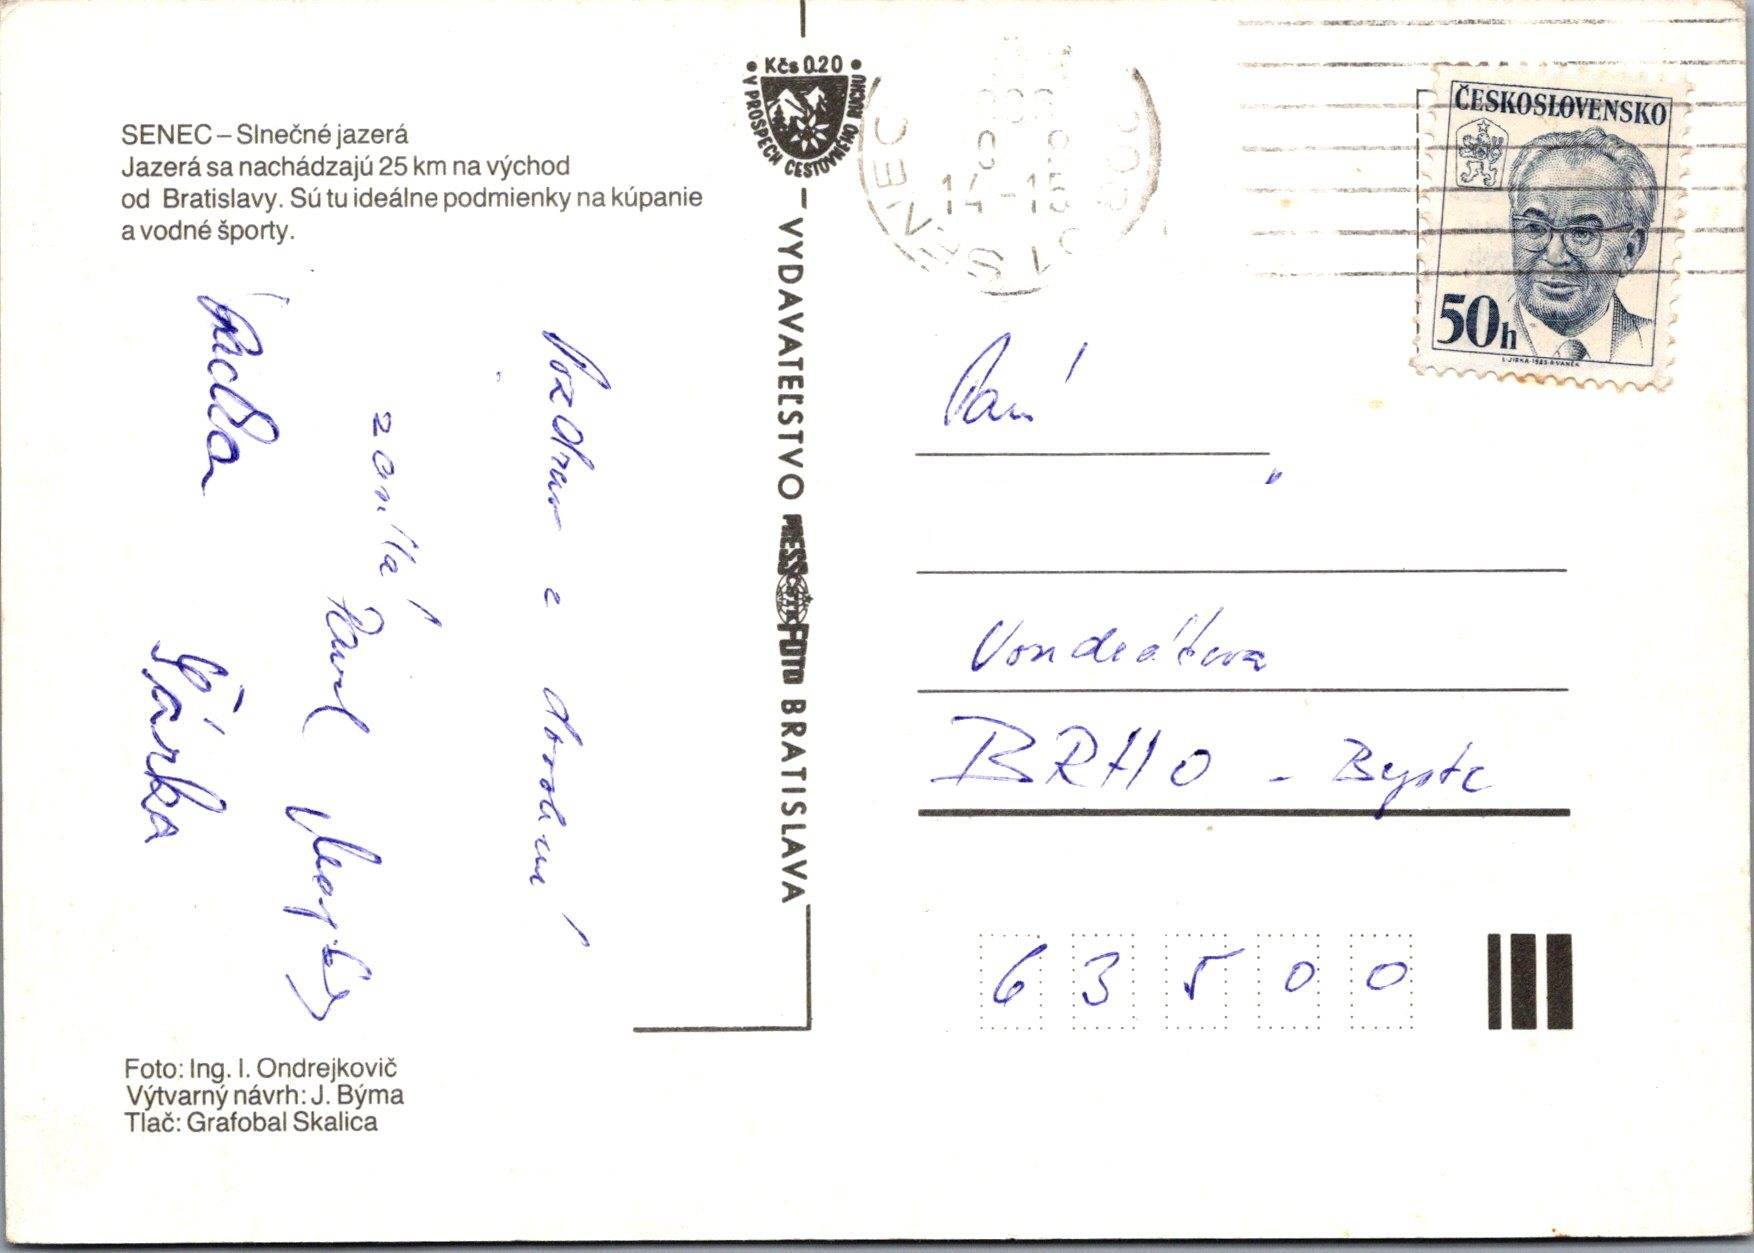 SENEC – Slnečné jazerá
Jazerá sa nachádzajú 25 km na východ
od Bratislavy. Sú tu ideálne podmienky na kúpanie
a vodné športy.
Kčs 0.20
V PROSPECH CESTOVNÉHO RUCHU
VYDAVATEĽSTVO PRESSFOTO BRATISLAVA
ČTK
SENEC
14-15
ČESKOSLOVENSKO
50h
L.JIRKA-1983-R.VANĚK
Pozdrav z dovolené
Pavel
Radka Šárka
Paní
Vondrátova
BRNO - Bystc
63500
Foto: Ing. I. Ondrejkovič
Výtvarný návrh: J. Býma
Tlač: Grafobal Skalica